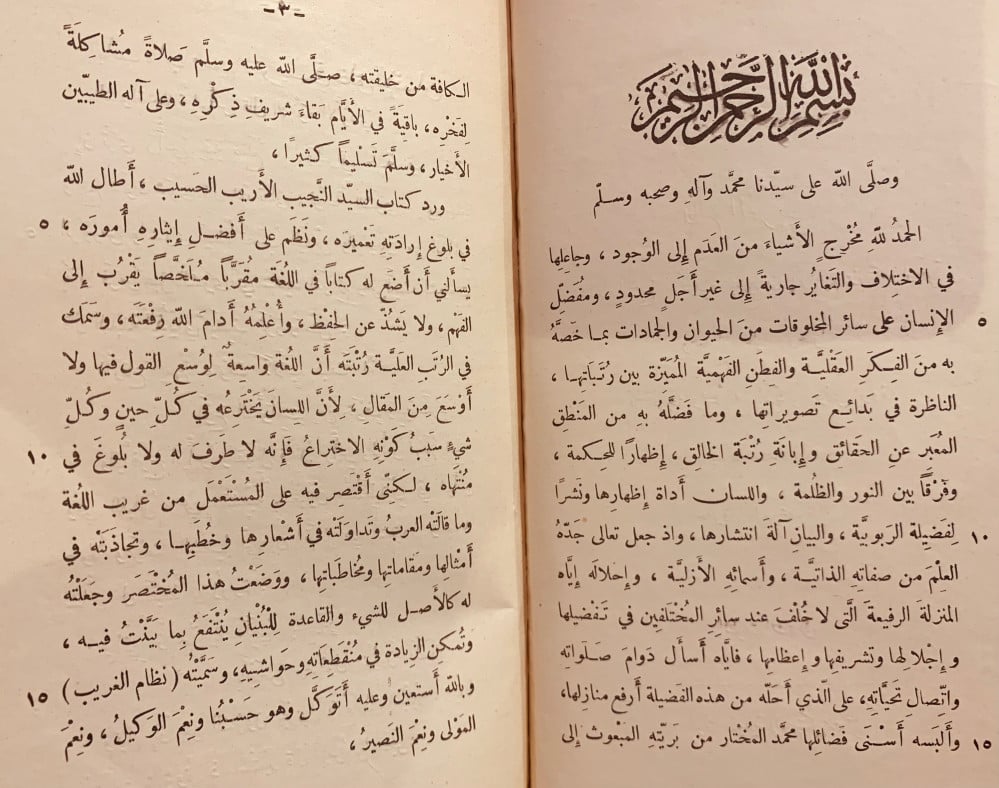 بسم الله الرحمن الرحيم
وصلَّى الله على سيّدنا محمَّد وآلهِ وصحبه وسلّم
الحمدُ للهِ مُخْرِجِ الأشياءَ منَ العدَم إلى الوُجود ، وجاعِلِها
في الاختِلاف والتَّغايُر جاريةً إلى غير أَجلٍ محدودٍ ، ومُفَضّلِ
الإنسان على سائر المخلوقات منَ الحيوان والجمادات بمـا خَصَّهُ
٥
به منَ الفِـكَرِ العَقْليَّـة والفِطَنِ الفَهْميَّة المُمَيّزة بين رُتَباتهـا ،
الناظرة في بَدائِـع تَصويراتِها ، وما فَضَّلَهُ بِهِ من المَنْطِق
المُعبَر عنِ الحقائق و إبانَةِ رُتْبَة الخالق ، إظهارًا للحِكمة ،
وفَرْقًا بين النور والظُلمة ، واللسان أداة إظهارِها ونَشرًا
لِفضيلة الرَبوبيَّة ، والبيان آلة انتشارها ، واذ جعل تعالى جَدّهُ
١٠
العِلْمَ من صفاتِهِ الذاتيَّـة ، وأَسمائهِ الأزليَّة ، و إحلاله إيَّاه
المنزلة الرفيعة الَّتى لا خُلْفَ عند سائِرِ المُخْتلفين في تَفْضيلها
و إجلالها وتشريفها و إعظامها ، فايَّاه أسأل دَوامَ صَلَواتِه
واتّصالِ تَحِيَّاتِهِ، على الّذي أحلّه من هذه الفَضيلة أرفع منازلها،
وأَلبسه أَسْنَى فَضائلها محمَّد المُختار من بَريّتِه المَبْعوث إلى
١٥
- ٣ -
الـكافة من خليقته ، صلَّى الله عليه وسلَّم صَلاةً مُشاكِلَةً
لِفَخْرِه ، باقيةً في الأَيَّام بَقاءَ شريفِ ذِكْرِهِ ، وعلى آله الطيبّين
الأخيار ، وسلَّمَ تَسْليمًا كثيرًا ،
ورد كتاب السيّد النَّجيب الأَريب الحَسيب ، أَطال الله
في بلوغ إرادَتِهِ تَعْميرَه ، ونَظَم على أَفضل إيثارِهِ أُمورَه ،
٥
يسأَلني أن أَضَع له كتابًا في اللُغَة مُقَرَّبًا مُلَخَّصًا يَقْرُب إلى
الفَهْم ، ولا يَشُذّ عن الحِفظ ، وأُعْلِمُهُ أَدامَ الله رِفْعتَه ، وسَمَك
في الرُتَب العَليَّة رُتْبَته أَنَّ اللُغة واسعةٌ لِوُسْع القول فيها ولا
أَوْسَعَ مِنَ المقال ، لِأَنَّ اللسان يَخْتَرِعُه في كُلّ حينٍ وكُلِّ
شيءٍ سَبَبُ كَوْنِهِ الاختراعُ فَإِنَّه لا طَرفَ له ولا بُلوغَ في
١٠
مُنْتَهاه ، لـكنّى أَقْتَصِر فيه على المُستَعْمَل من غريب اللُغة
وما قالَتْه العربُ وتَداوَلَتْه في أَشْعارِها وخُطَبِها ، وتجاذَبَتْه في
أَمثالها ومَقاماتِها ومُخاطَباتِها ، ووَضَعْتُ هذا المُخْتَصَر وجَعلْتُه
له كالأَصـل للشيء والقاعدة لِلْبُنْيَان يُنْتَفَعُ بِما بَيَّنْتُ فيـه ،
وتُمكن الزيادة في مُنْقَطِعاتِهِ وحَواشيهِ ، وسَمَّيْتُه ( نظام الغريب )
١٥
وبالله أَستعين وعليه أَتَوَكَّل وهو حَسْبُنا ونِعْمَ الوَكيلُ ، ونِعْمَ
المَوْلى ونِعْمَ النَصيرُ ،